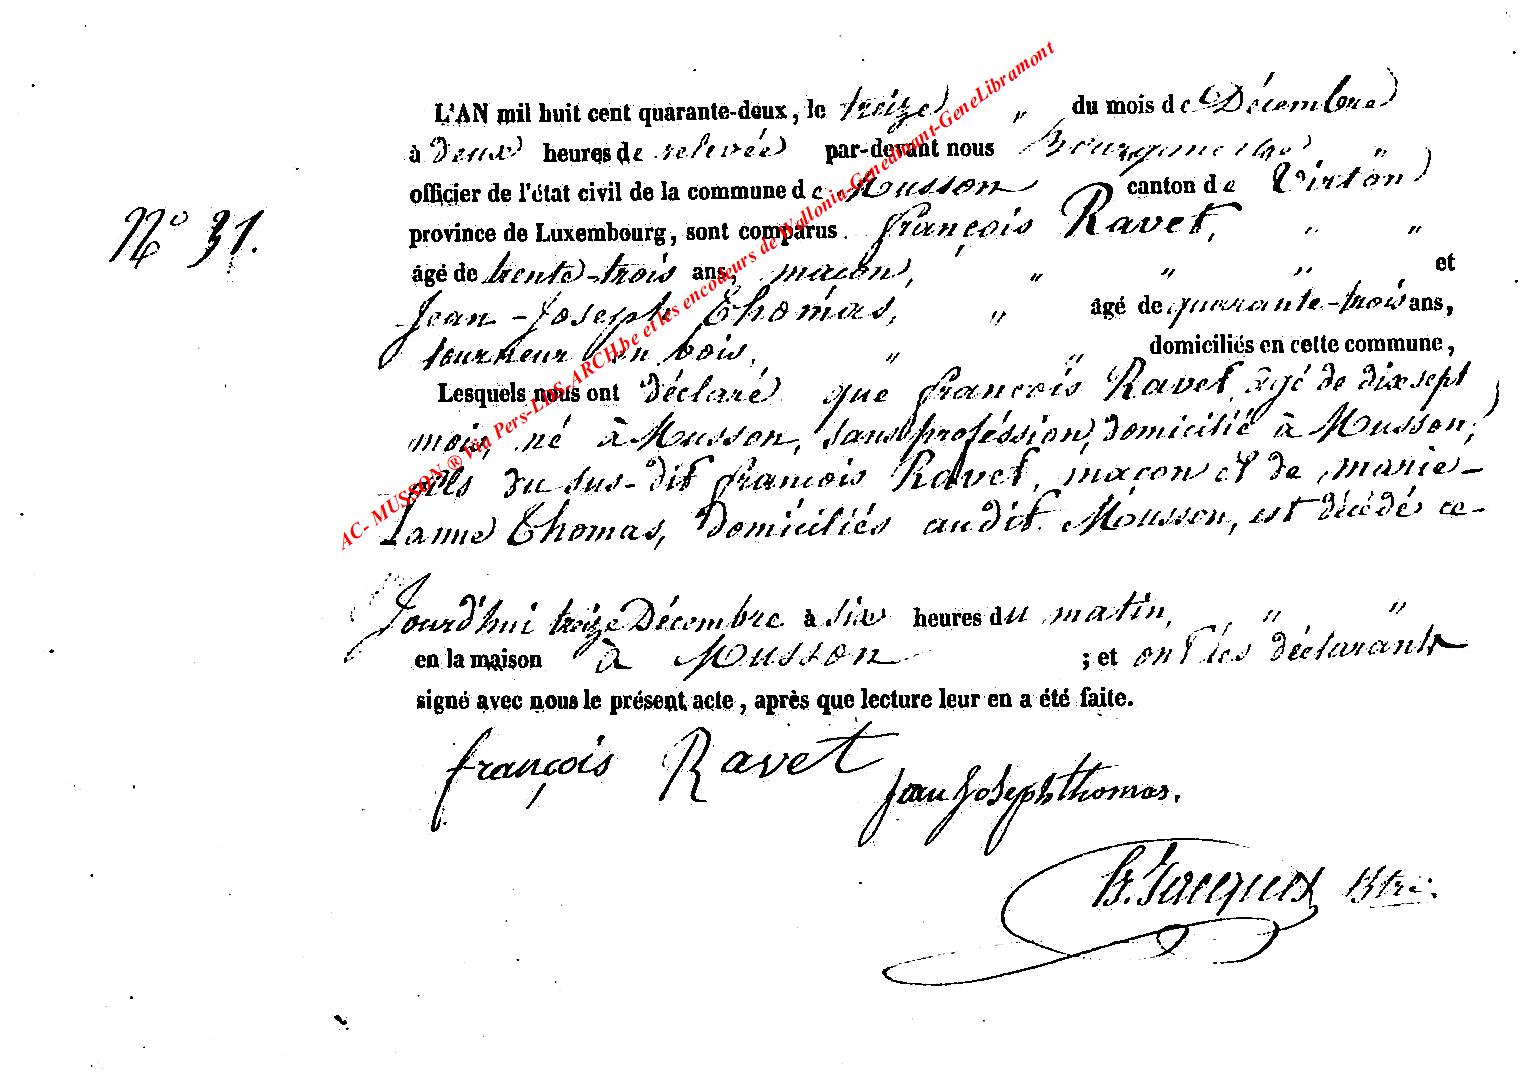 L'AN mil huit cent quarante-deux, le treize " du mois de Décembre
à deux heures de relevée par-devant nous Bourgmestre "
officier de l'état civil de la commune de Musson canton de Virton
N° 31.
province de Luxembourg, sont comparus françois Ravet, " "
âgé de trente-trois ans, maçon, " " " et
Jean-Joseph Thomas, " âgé de quarante-trois ans,
tourneur en bois, " " domiciliés en cette commune,
Lesquels nous ont déclaré que françois Ravet, âgé de dix sept
mois, né à Musson, sans proféssion, domicilié à Musson,
fils du sus-dit françois Ravet, maçon et de marie-
Janne Thomas, domiciliés audit Musson, est décédé ce-
Jourd'hui treize Décembre à six heures du matin, " "
en la maison à Musson ; et ont les déclarants
signé avec nous le présent acte, après que lecture leur en a été faite.
françois Ravet
Jean Joseph thomas.
Jacques Btre.
AC- MUSSON ® Via Pers-LDS-ARCH.be et les encodeurs de Wallonia-Genedinant-GeneLibramont